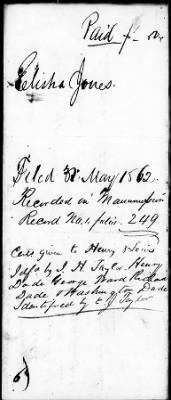 Paid
Elisha Jones.
Filed 31 May 1862.
Recorded in Manumission
Record No. 1. folio. 249
Cert given to Henry & Louis
Idfd by J. H. Taylor Henry
Dade George Ward Richard
Dade & Washington Dade
Identified by E. J. Taylor